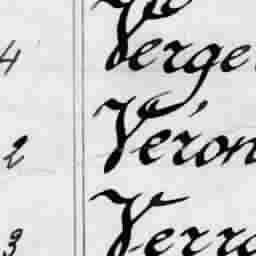 4 Verge
2 Véron
3 Verr